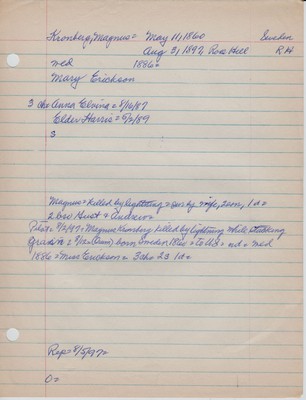 Kronberg, Magnus = May 11, 1860 Sweden
Aug 3, 1897, Rose Hill RH
med 1886=
Mary Erickson
3 che Anna Elvina = 8/10/87
Elder Harris = 6/2/89
3
Magnus = killed by lightning = sur by wife, 2 son, 1 d =
2 bro Gust & Andrew =
Pilot = 8/12/97 = Magnus Kronberg killed by lightning while stacking
grain = born Sweden 1860 = to US = md = med
1886 = Miss Erickson = 3 che 2s 1d =
Rep = 8/5/97 =
O =